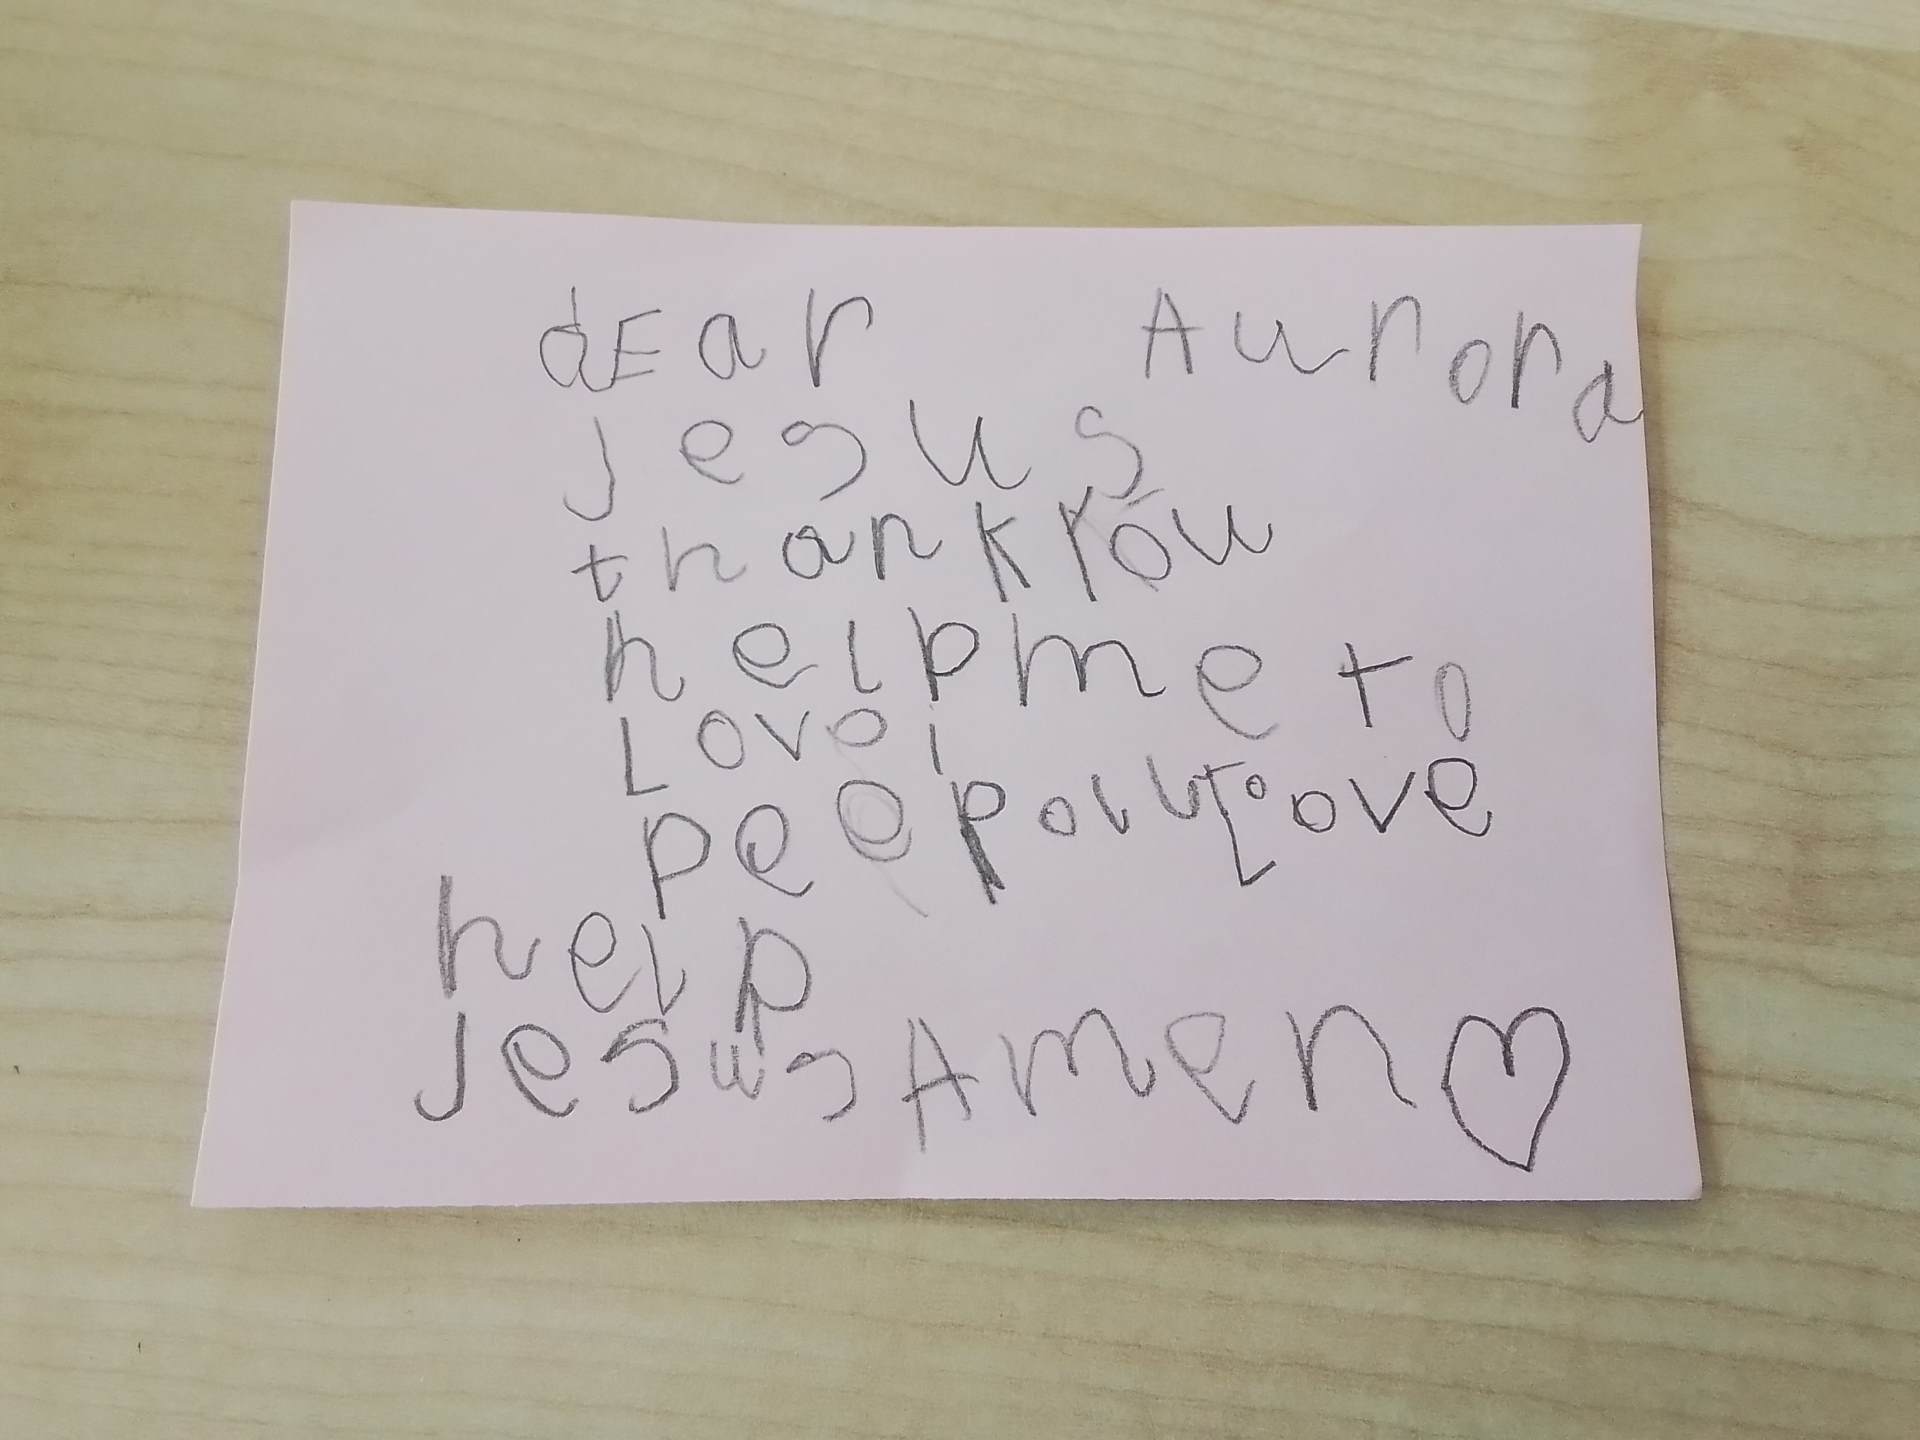 dEar Aurora
jesus
thank you
help me to
Love i
peepoll to Love
help
Jesus Amen